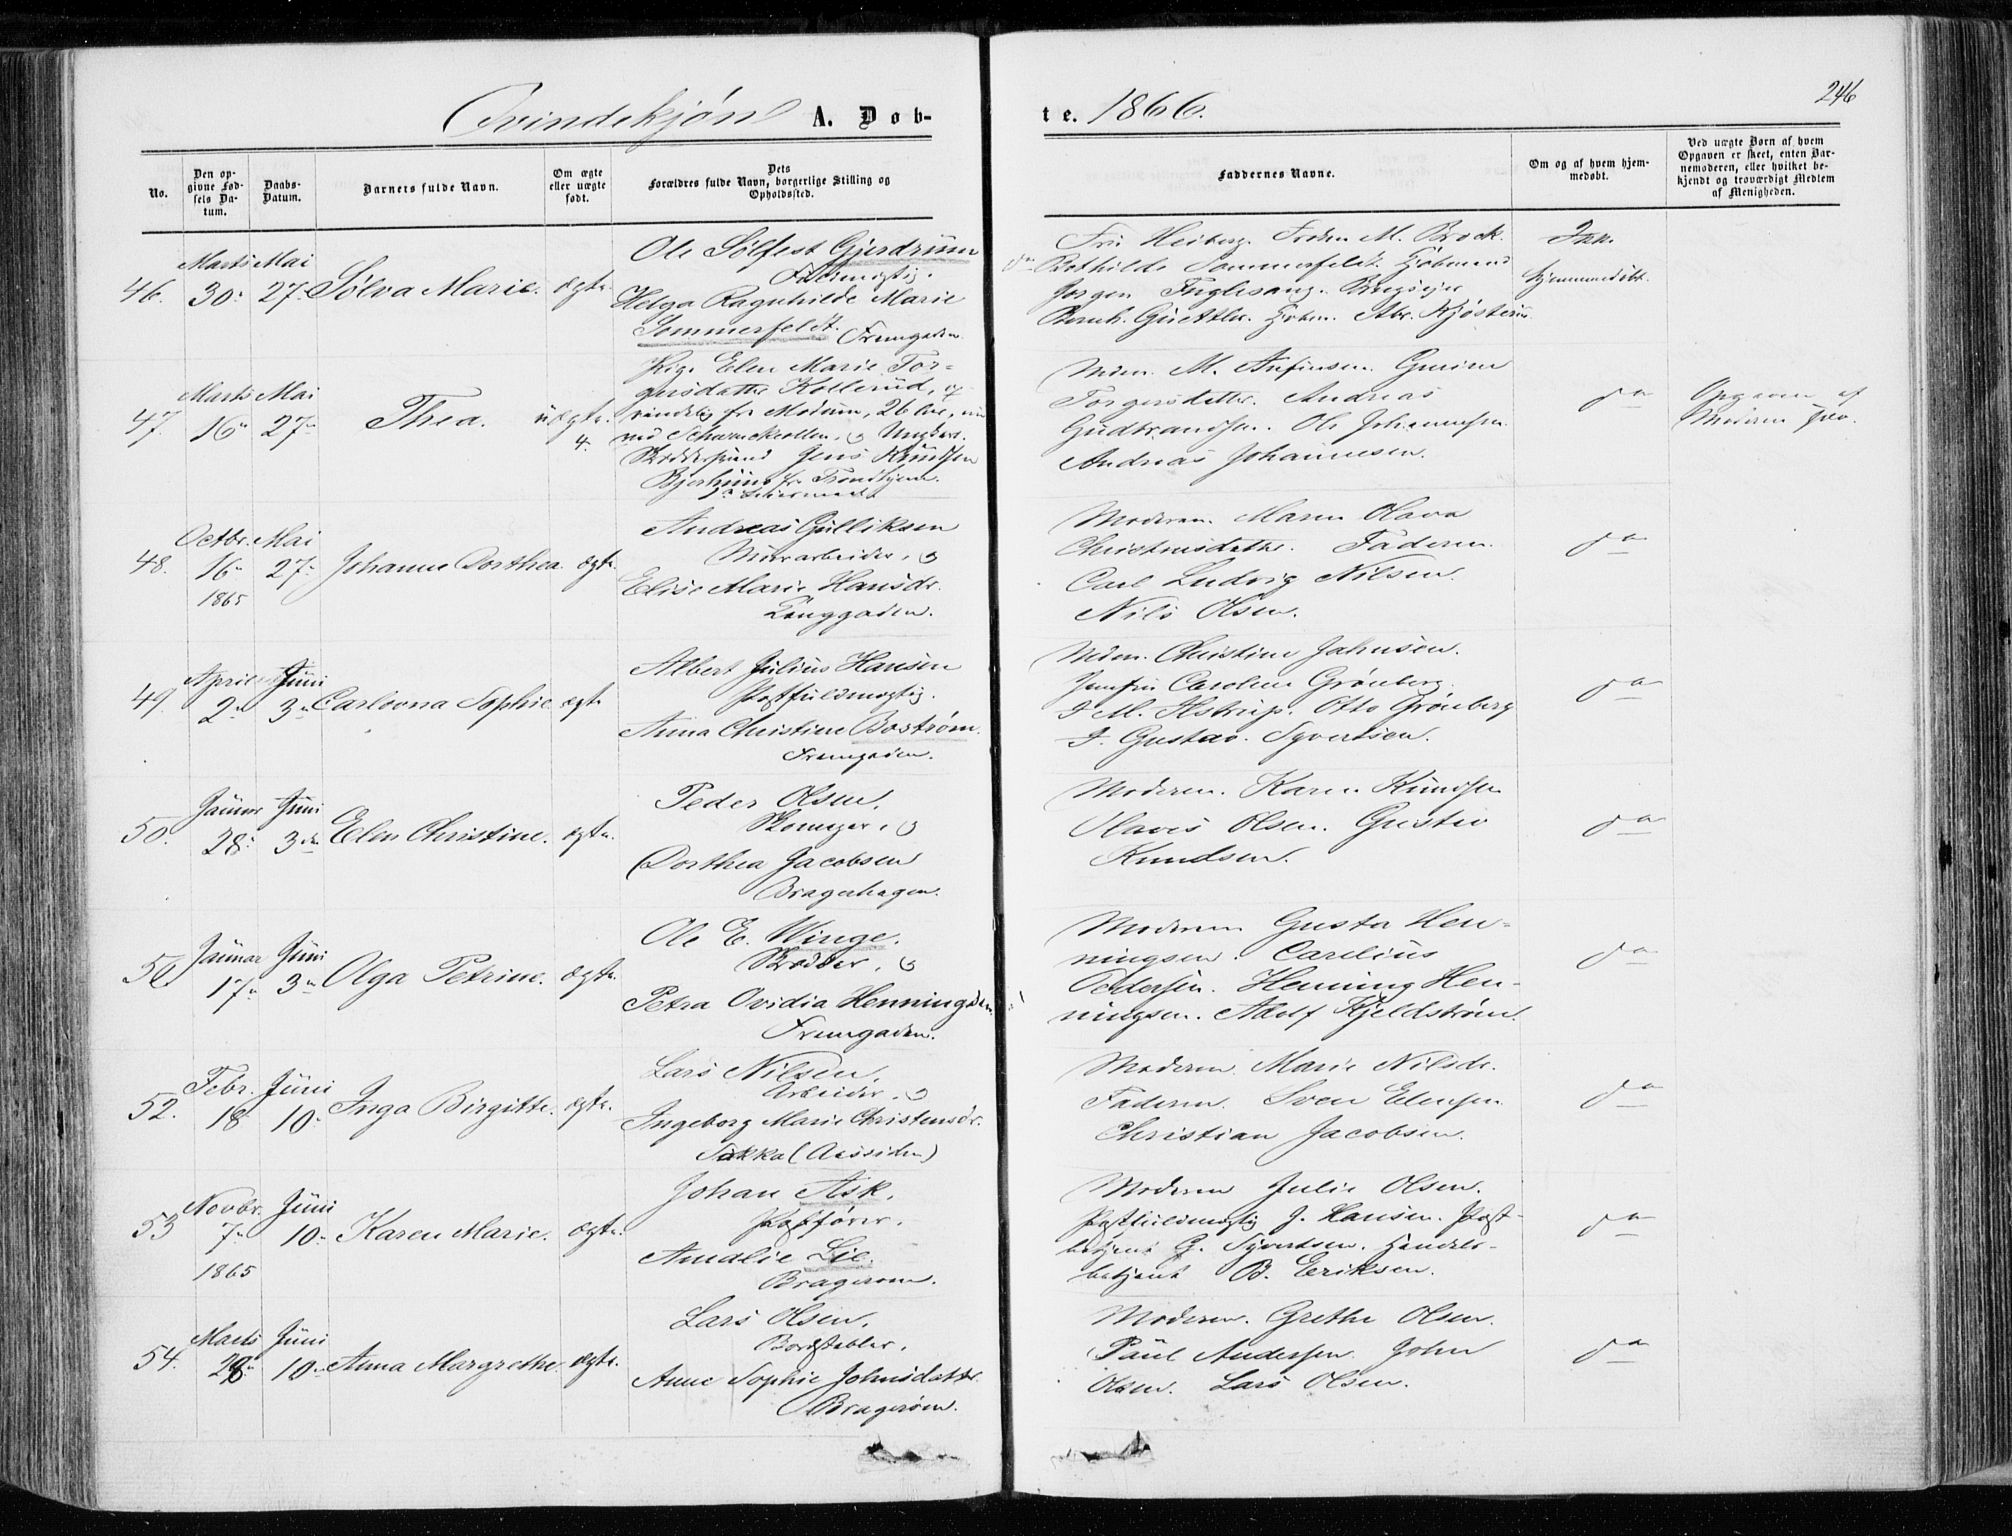 246
Qvindekjøn A. Døb-
te. 1866.
No.
Den op-
givne Fød-
sels Da-
tum.
Daabs-
Datum.
Barnets fulde Navn.
Om ægte
eller uægte
født.
Dets
Forældres fulde Navn, borgerlige Stilling og
Opholdssted.
Faddernes Navne.
Om og af hvem hjem-
medøbt.
Ved uægte Børn af hvem
Opgaven er skeet, enten Bar-
nemoderen, eller hvilket be-
kjendt og troværdigt Medlem
af Menigheden.
46.
Marts
30.
Mai
27.
Sølva Marie.
ægte
Ole Sølfest Gjerdrum
Helga Ragnhilde Marie
Sommerfeldt.
Fremgaden
Fru Heiberg. Frøken M. Brock.
Bothilde Sommerfeldt.
Jørgen
Ikke
hjemmedøbt.
47.
Marts
16
Mai
27
Thea.
uægte.
4.
Pige Elen Marie Tor-
gersdatter Kollerud,
for Modum, 26 Aar,
Jens Knudsen
Mdm. M. Anfinsen. Gurine
Torgersdatter. Andreas
Gudbrandsen. Ole Johannesen
Andreas Johannesen.
do
Opgaven af
Moderen selv.
48.
Octbr.
16
1865
Mai
27
Johanne Dorthea.
ægte.
Andreas Gulliksen
Murarbeider, og
Elise Marie Hansdr.
Langgaden.
Moderen. Maren Olava
Christensdatter. Faderen.
Carl Ludvig Nilsen.
Nils Olsen.
do
49.
April
2
Juni
3
Carlovna Sophie
ægte
Albert Julius Hansen
Postfuldmægtig.
Anna Christine Boström.
Fremgaden.
Mdm. Christine Jahnsen.
Jomfru Caroline Grønberg.
J. M. Alstrup. Otto Grønberg
J. Gustav. Syvertsen.
do
50.
Januar
28.
Juni
3
Elen Christine.
ægte.
Peder Olsen,
Skomager, og
Dorthea Jacobsen
Bragerhagen.
Moderen. Karen Knudsen
Olaves Olsen. Gustav
Knudsen.
do
51.
Januar
17
Juni
3
Olga Petrine.
ægte.
Ole E. Winge.
Skrædder, og
Petra Ovidia Henningsen
Fremgaden.
Moderen Gusta Hen-
ningsen. Carelius
Pedersen. Henning Hen-
ningsen. Adolf Kjeldstrøm.
do
52.
Febr.
18
Juni
10.
Inga Birgitte.
ægte.
Lars Nilsen,
Arbeider, og
Ingeborg Marie Christensdr.
Søkka (Aassiden)
Moderen. Marie Nilsdr.
Faderen. Sven Elensen
Christian Jacobsen.
do
53
Novbr.
7
1865
Juni
10.
Karen Marie.
ægte.
Johan Ask,
Postfører.
Amalie Lie.
Bragerøen.
Moderen Julie Olsen.
Postfuldmægtig J. Hansen. Post-
betjent G. Syvertsen. Handels-
betjent B. Eriksen.
do
54.
Marts
28
Juni
10.
Anna Margrethe.
ægte.
Lars Olsen,
Bordstabler.
Anne Sophie Johnsdatter.
Bragerøen.
Moderen. Grethe Olsen.
Paul Andersen. John
Olsen. Lars Olsen.
do